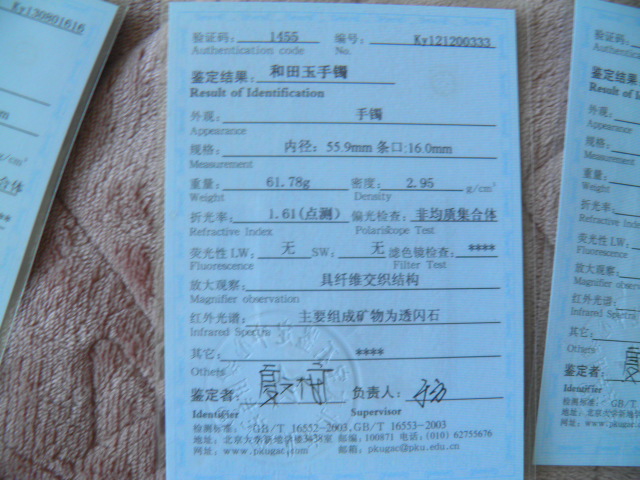 Ky130801616
验证码: 1455 编号: Ky121200333
Authentication code No.
鉴定结果: 和田玉手镯
Result of Identification
外观: 手镯
Appearance
规格: 内径: 55.9mm 条口:16.0mm
Measurement
重量: 61.78g 密度: 2.95 g/cm³
Weight Density
折光率: 1.61(点测) 偏光检查: 非均质集合体
Refractive Index Polariskope Test
荧光性 LW: 无 SW: 无 滤色镜检查: ****
Fluorescence Filter Test
放大观察: 具纤维交织结构
Magnifier observation
红外光谱: 主要组成矿物为透闪石
Infrared Spectra
其它: ****
Others
鉴定者: 负责人:
Identifier Supervisor
检测标准: GB/T 16552-2003,GB/T 16553-2003
地址: 北京大学新地学楼3638室 邮编: 100871 电话: (010) 62755676
网址: www.pkugac.com 邮箱: pkugac@pku.edu.cn
验证码:
Authentic
鉴定结果
Result of I
外观:
Appearance
规格:
Measurement
重量:
Weight
折光率:
Refractive
荧光性 L
Fluorescence
放大观察
Magnifier
红外光谱
Infrared
其它:
Others
鉴定者:
Identifier
检测标准:
地址: 北京大
网址: www.